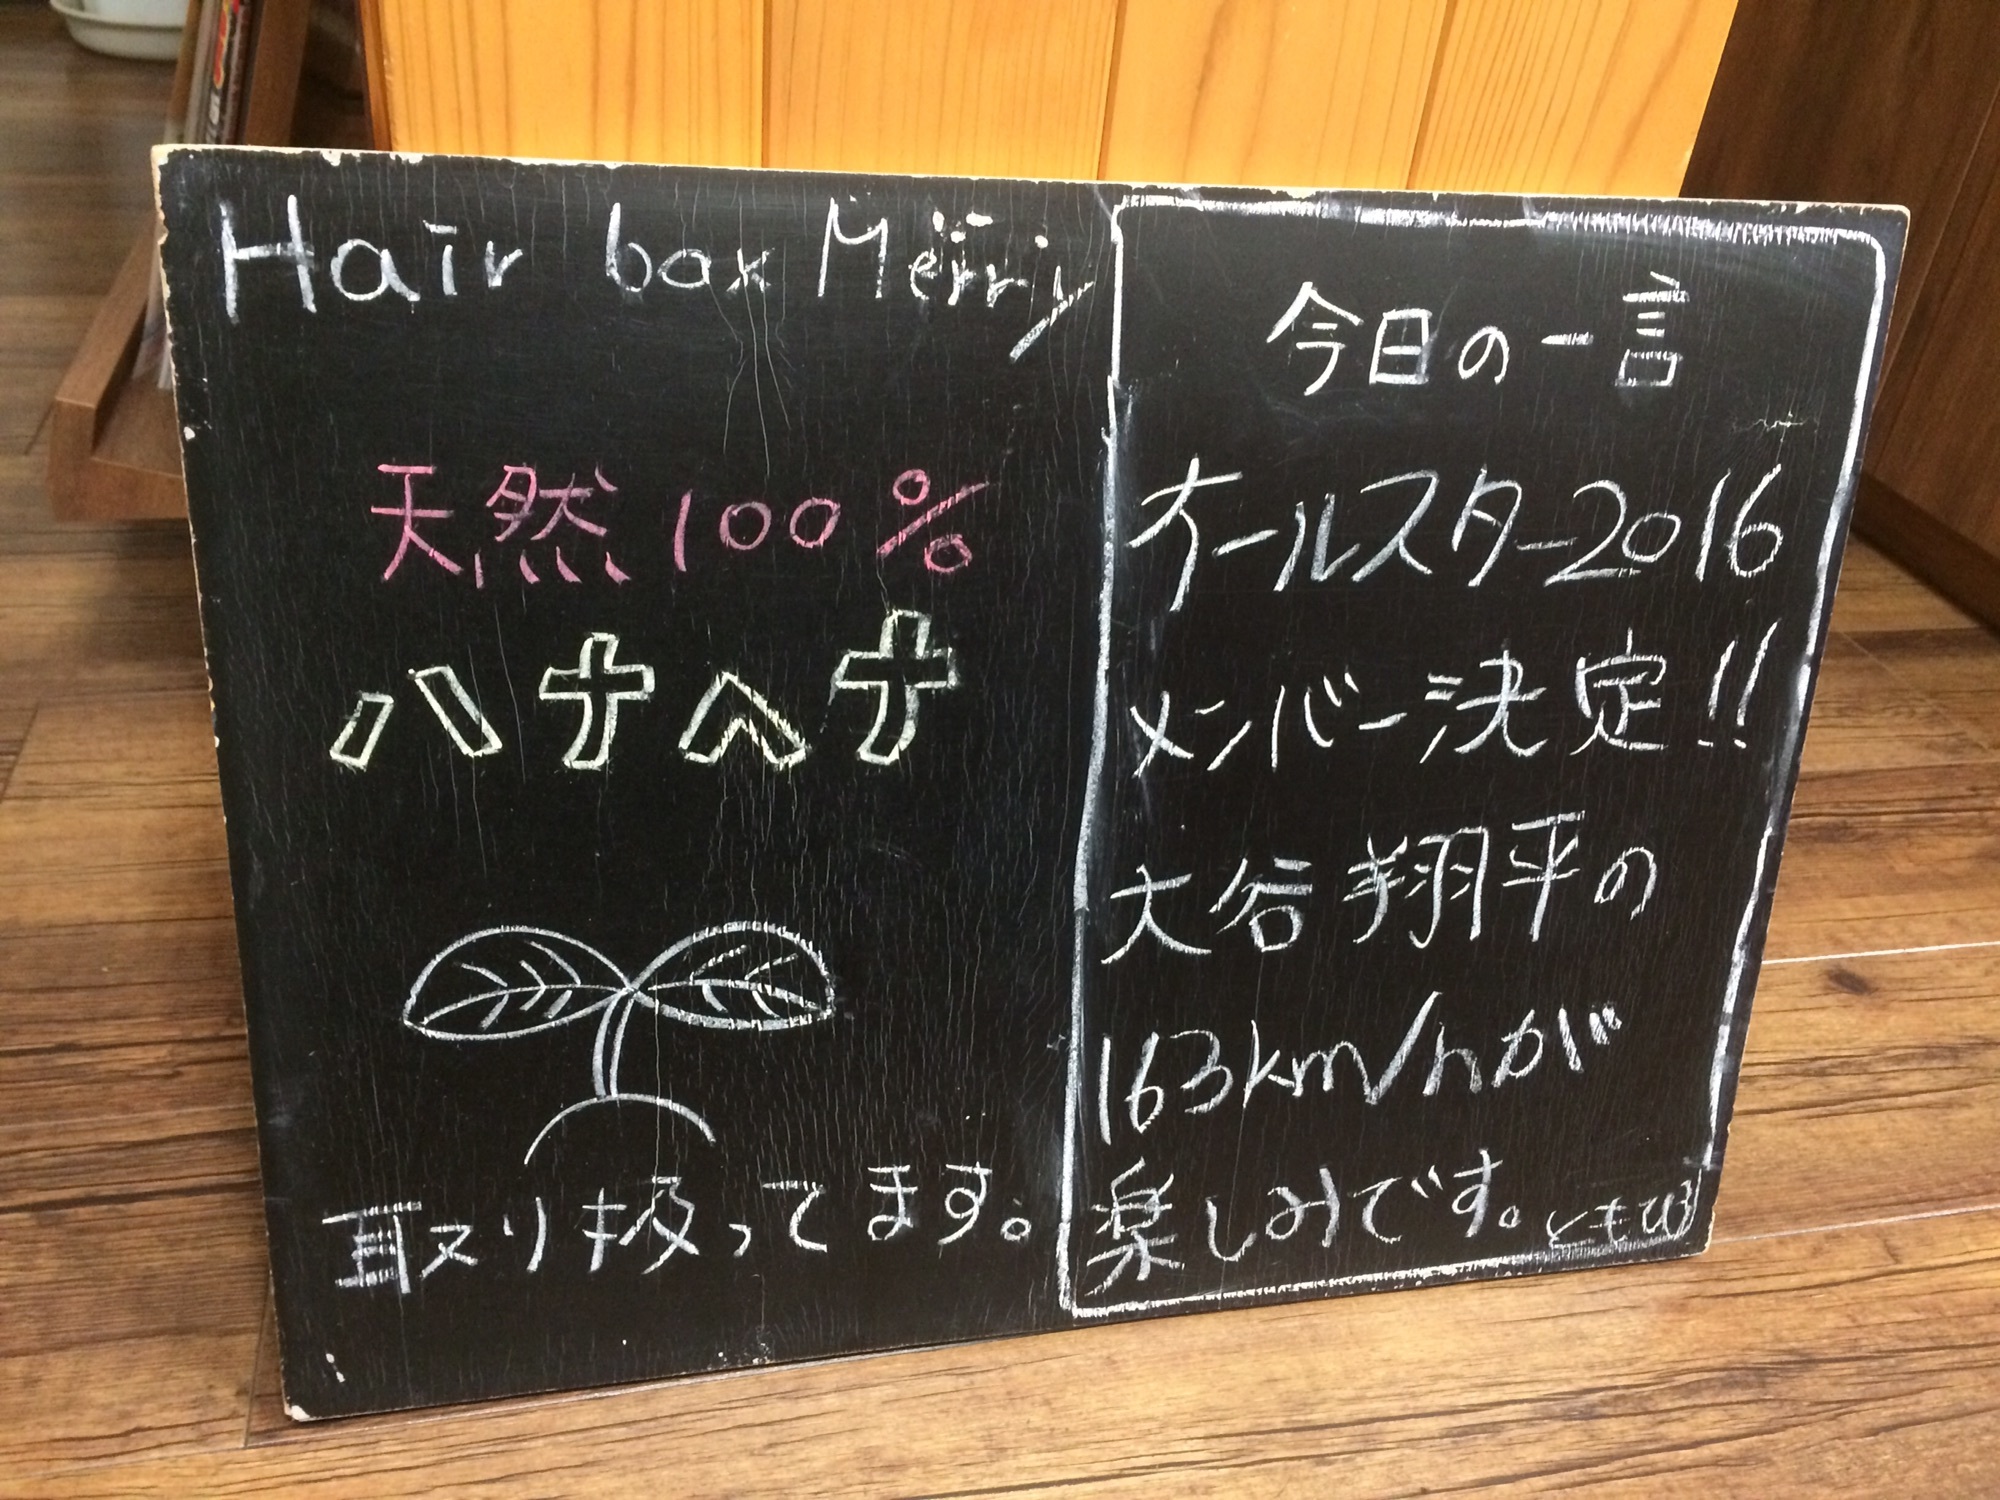 Hair box Merry
天然100%
ハナヘナ
取り扱ってます。
今日の一言
オールスター2016
メンバー決定!!
大谷翔平の
163km/hが
楽しみです。ともひろ